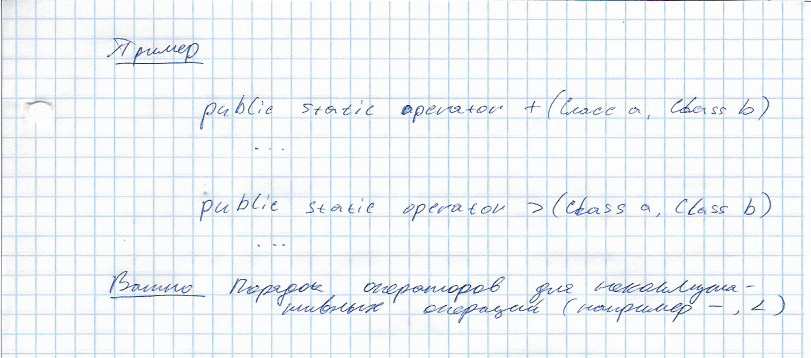 Пример
public static operator + (Class a, Class b)
...
public static operator > (Class a, Class b)
...
Важно Порядок операторов для некоммута-
тивных операций (например -, <)